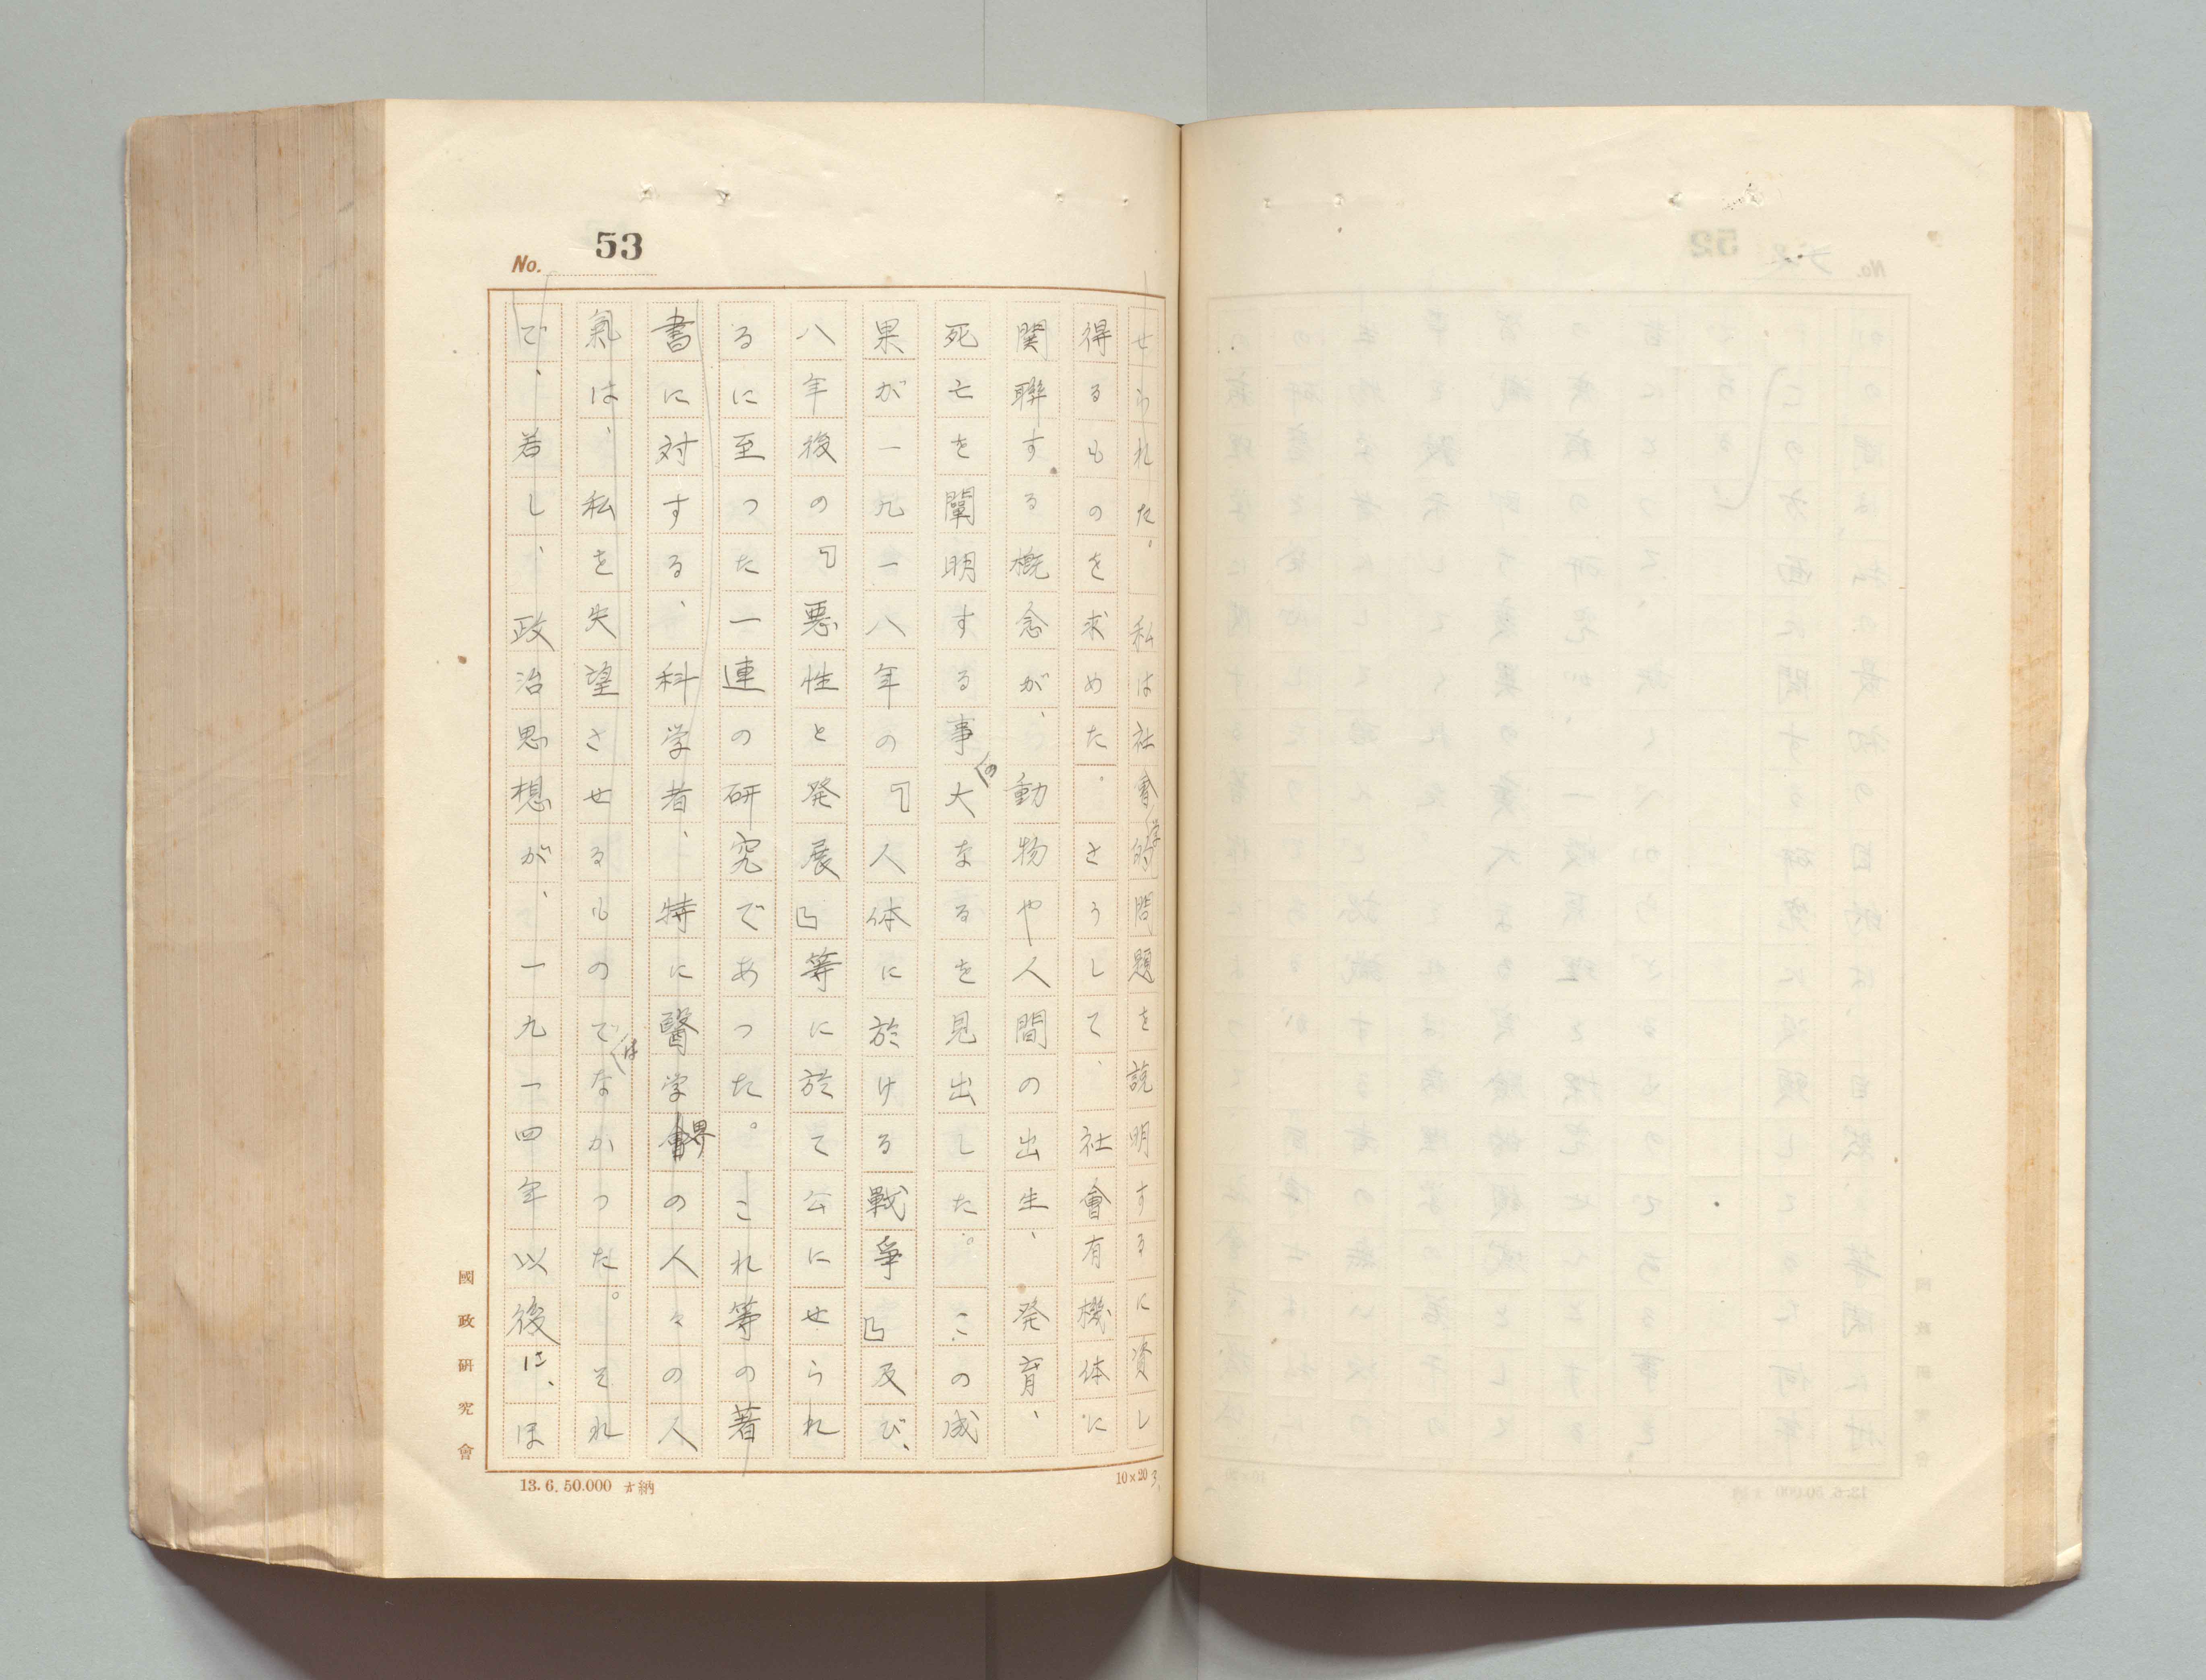 No. 53
せられた。私は社會学的問題を説明するに資し
得るものを求めた。さうして、社會有機体に
関聯する概念が、動物や人間の出生、発育、
死亡を闡明する事の大なるを見出した。この成
果が一九一八年の『人体に於ける戰爭』及び、
八年後の『悪性と発展』等に於て公にせられ
るに至つた一連の研究であつた。これ等の著
書に対する、科学者、特に醫学界の人々の人
氣は、私を失望させるものではなかつた。それ
で、若し、政治思想が、一九一四年以後に、ほ
國政研究會
10×20
3.
13.6.50.000 納